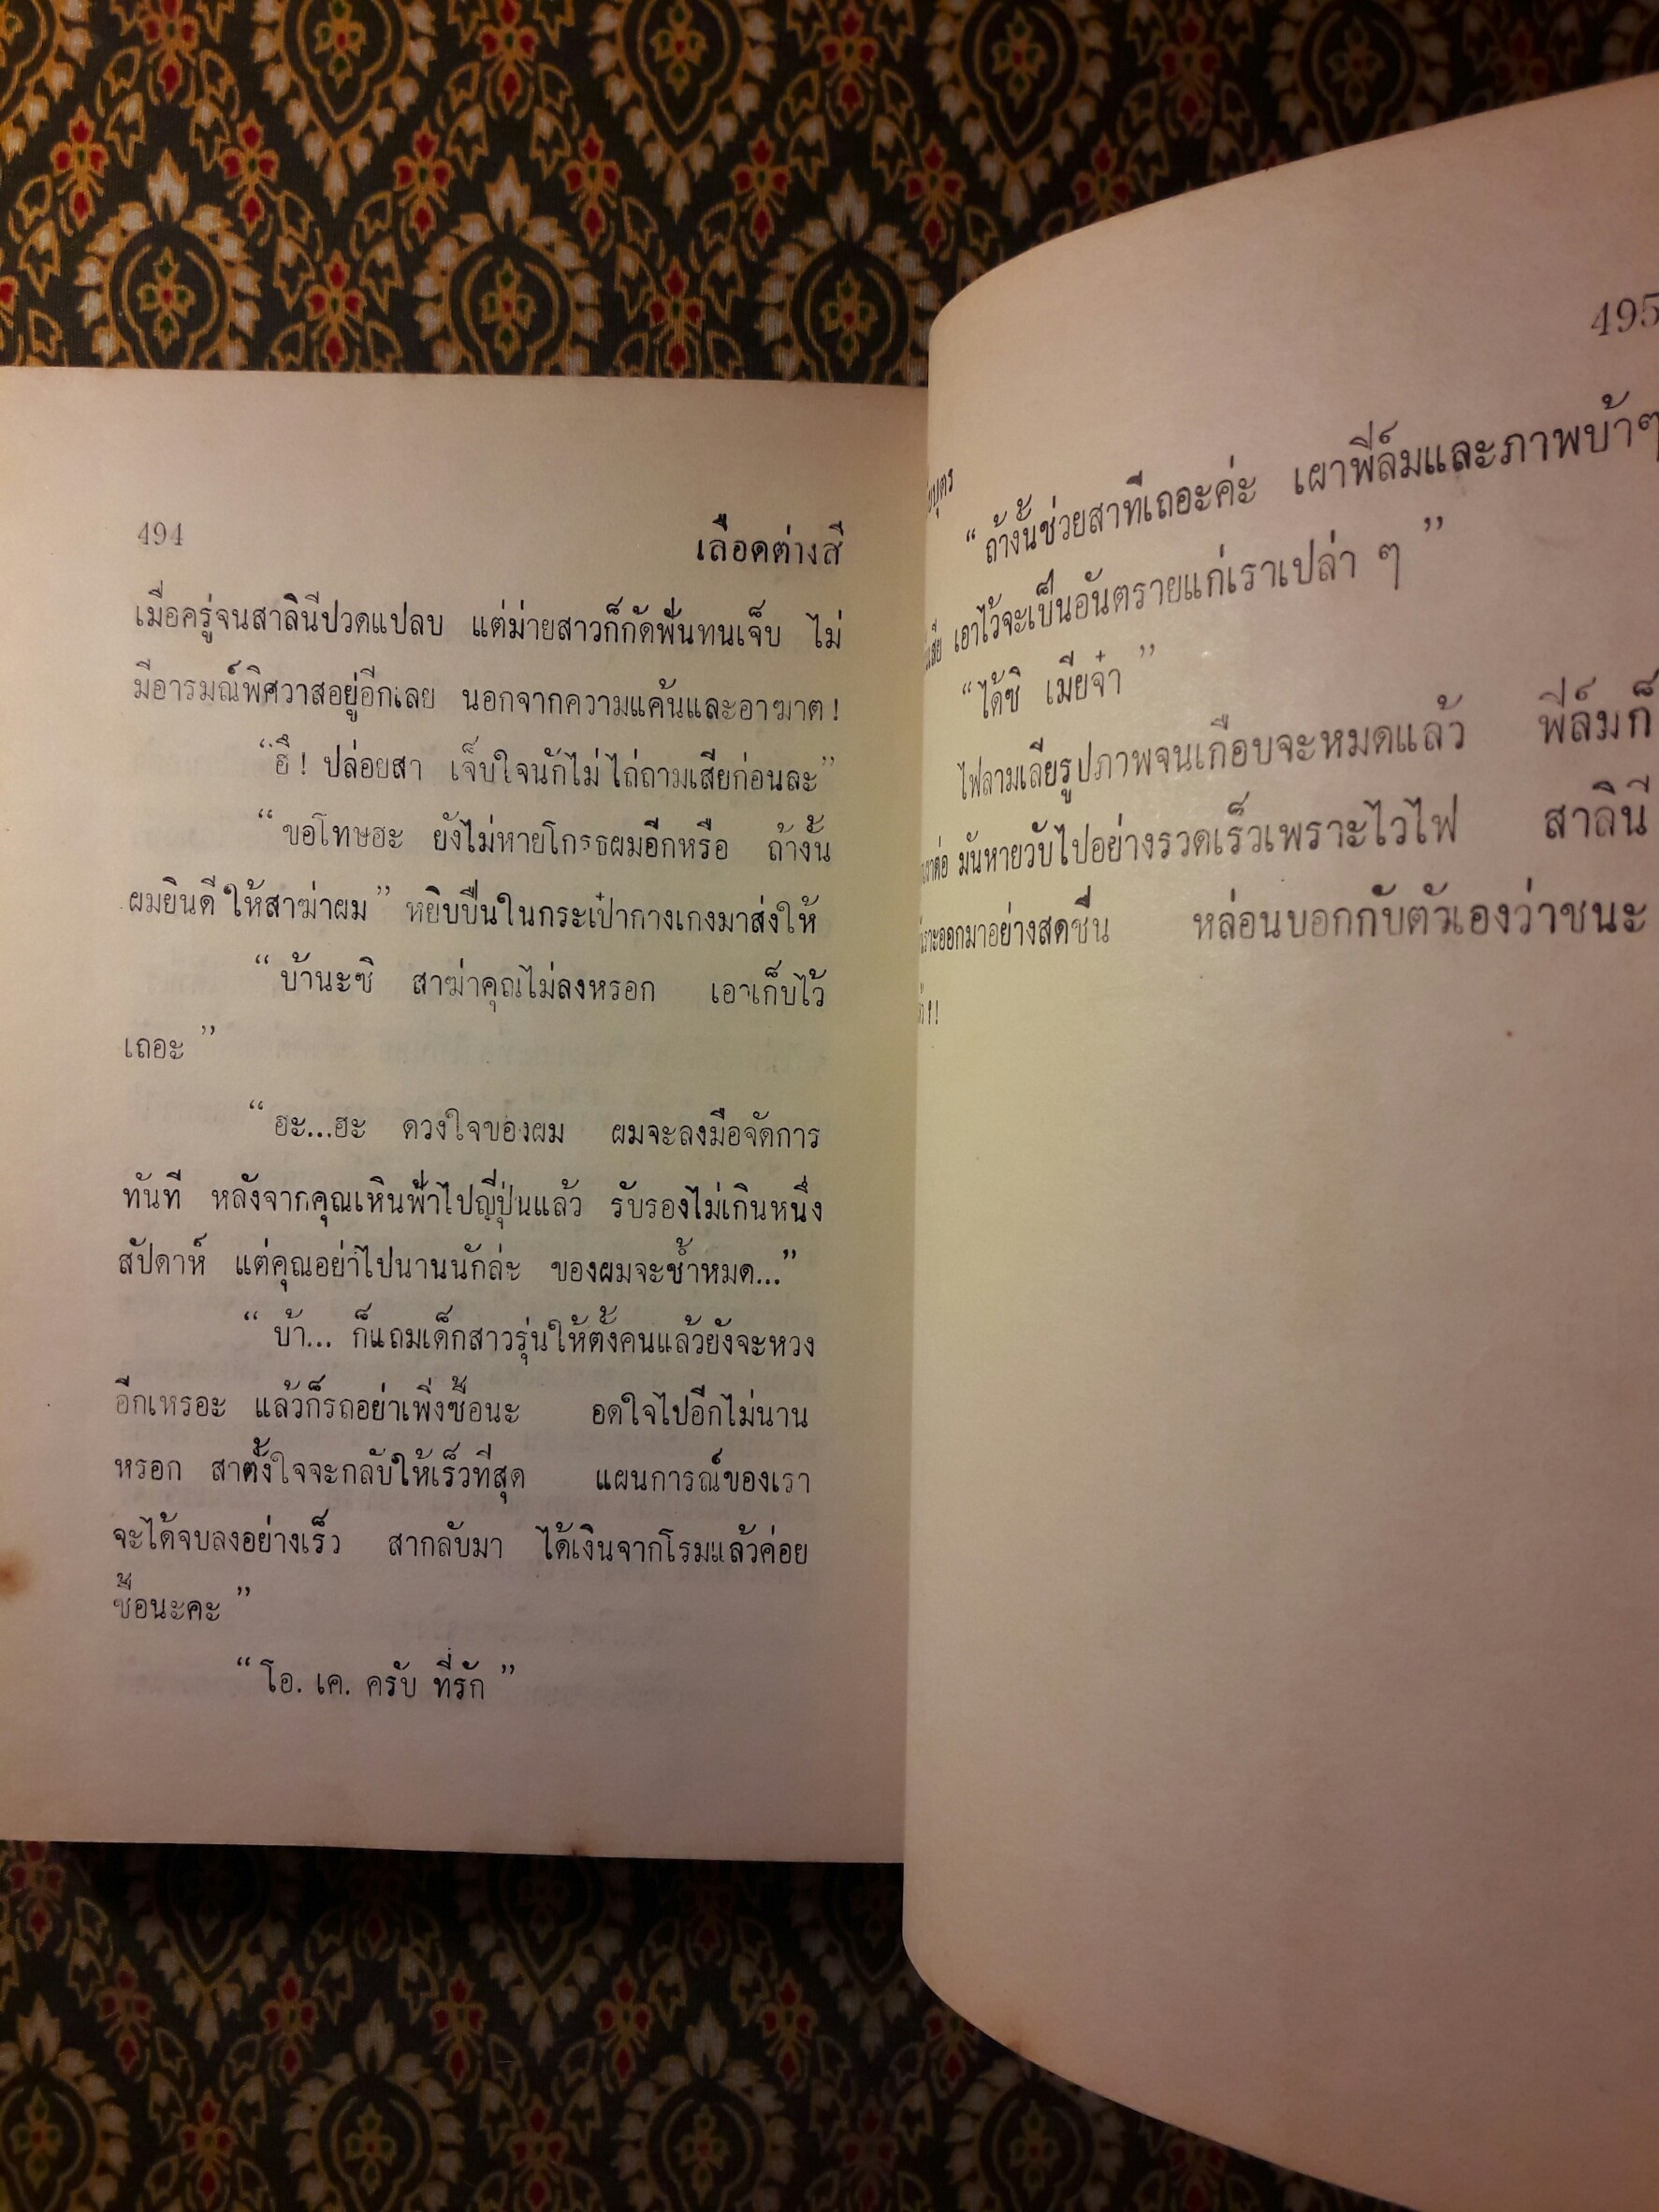 494 เลือดต่างสี
เมื่อครู่จนสาลินีปวดแปลบ แต่ม่ายสาวก็กัดฟันทนเจ็บ ไม่
มีอารมณ์พิศวาสอยู่อีกเลย นอกจากความแค้นและอาฆาต!
“ฮึ! ปล่อยสา เจ็บใจนักไม่ไถ่ถามเสียก่อนละ”
“ขอโทษฮะ ยังไม่หายโกรธผมอีกหรือ ถ้างั้น
ผมยินดีให้สาฆ่าผม” หยิบปืนในกระเป๋ากางเกงมาส่งให้
“บ้านะซิ สาฆ่าคุณไม่ลงหรอก เอาเก็บไว้
เถอะ”
“ฮะ...ฮะ ดวงใจของผม ผมจะลงมือจัดการ
ทันที หลังจากคุณเหินฟ้าไปญี่ปุ่นแล้ว รับรองไม่เกินหนึ่ง
สัปดาห์ แต่คุณอย่าไปนานนักล่ะ ของผมจะช้ำหมด...”
“บ้า... ก็แถมเด็กสาวรุ่นให้ตั้งคนแล้วยังจะหวง
อีกเหรอะ แล้วก็รถอย่าเพิ่งซื้อนะ อดใจไปอีกไม่นาน
หรอก สาตั้งใจจะกลับให้เร็วที่สุด แผนการณ์ของเรา
จะได้จบลงอย่างเร็ว สากลับมา ได้เงินจากโรมแล้วค่อย
ซื้อนะคะ”
“โอ. เค. ครับ ที่รัก”
495
“ถ้างั้นช่วยสาทีเถอะค่ะ เผาฟีล์มและภาพบ้าๆ
เสีย เอาไว้จะเป็นอันตรายแก่เราเปล่า ๆ”
“ได้ซิ เมียจ๋า”
ไฟลามเลียรูปภาพจนเกือบจะหมดแล้ว ฟีล์มก็
มันหายวับไปอย่างรวดเร็วเพราะไวไฟ สาลินี
ออกมาอย่างสดชื่น หล่อนบอกกับตัวเองว่าชนะ